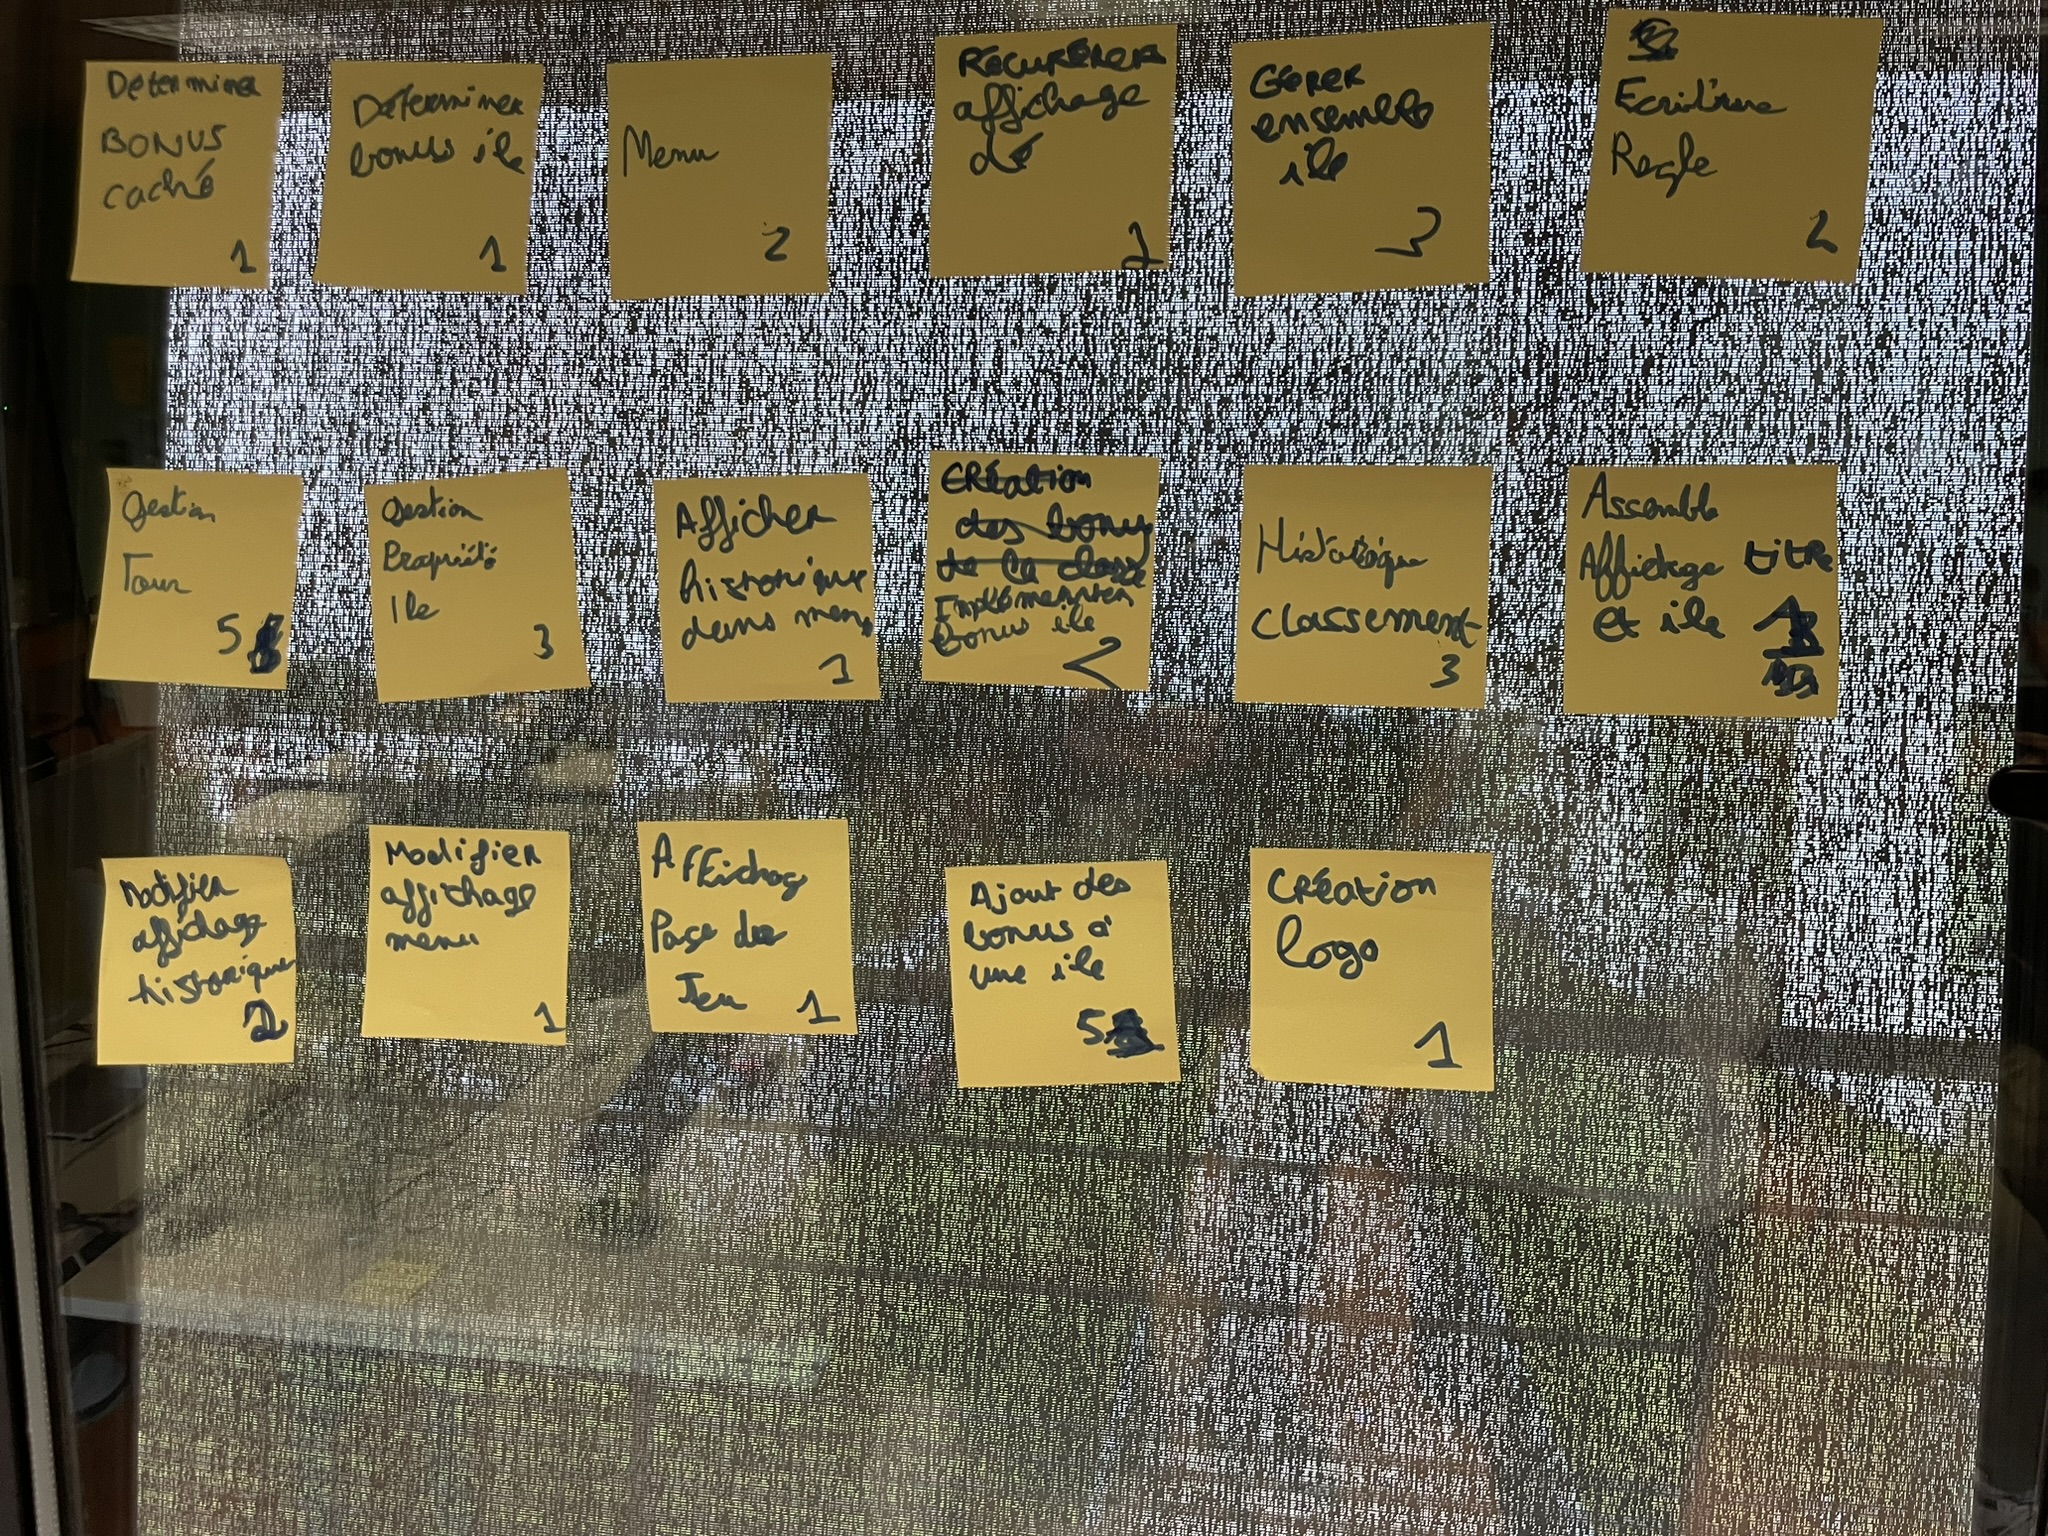 Determiner
BONUS
caché
1
Déterminer
bonus ile
1
Menu
2
RECUPÉRER
affichage
dé
1
GÉRER
ensemble
ile
3
Ecriture
Regle
2
Gestion
Tour
5
Gestion
Propriété
Ile
3
Afficher
historique
dans menu
1
CRÉation
des bonus
de la classe
Implémenter
Bonus ile
2
Historique
classement
3
Assemble
Affichage titre
et ile 1
Modifier
affichage
historique
2
Modifier
affichage
menu
1
Affichage
Page de
Jeu 1
Ajout des
bonus à
une ile
5
CRéation
logo
1